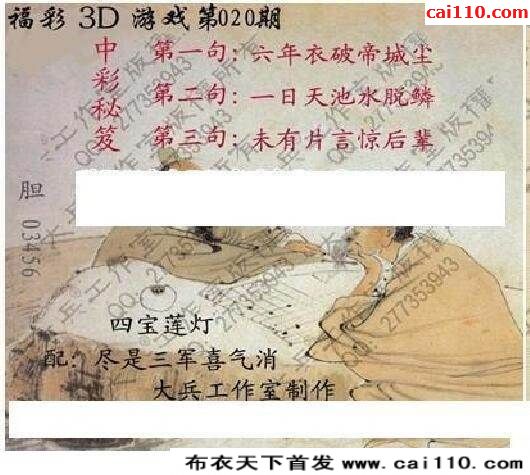 福彩 3D 游戏第020期
cai110.com
中彩秘笈
第一句：六年衣破帝城尘
第二句：一日天池水脱鳞
第三句：未有片言惊后辈
胆 03456
四宝莲灯
配：尽是三军喜气消
大兵工作室制作
布衣天下首发 www.cai110.com